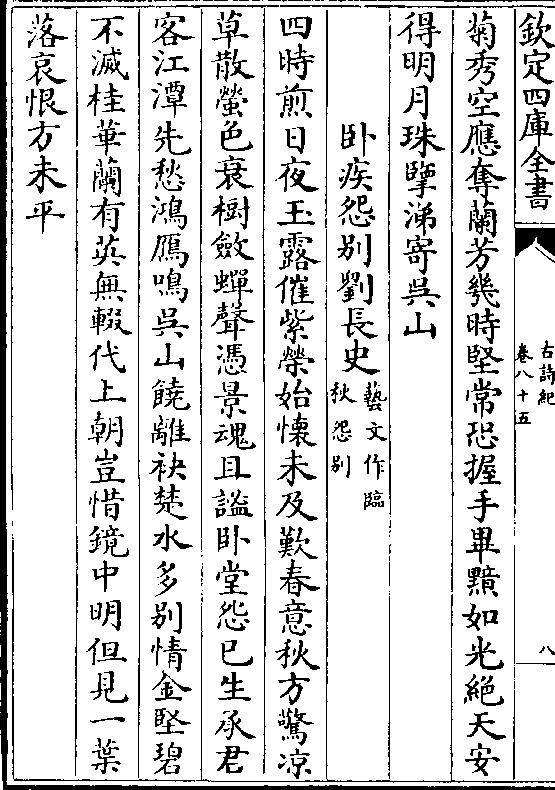 欽定四庫全書
古詩紀
卷八十五
八
菊秀空應奪蘭芳幾時堅常恐握手畢黰如光絶天安
得明月珠擥涕寄吳山
卧疾怨别劉長史
藝文作臨
秋怨别
四時煎日夜玉露催紫榮始懷未及歎春意秋方驚凉
草散螢色衰樹斂蟬聲憑景魂且謐卧堂怨已生承君
客江潭先愁鴻鴈鳴吳山饒離袂楚水多别情金堅碧
不滅桂華蘭有英無輟代上朝豈惜鏡中明但見一葉
落哀恨方未平